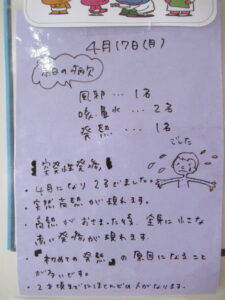 4月17日(月)
本日の病欠
風邪 … 1名
咳鼻水 … 2名
発熱 … 1名
【突発性発疹】
でした
・4月になり2名でました。
・突然高熱が現れます。
・高熱がおさまった後、全身に小さな
赤い発疹が現れます。
・『初めての発熱』の原因になること
が多いです。
・2才頃までにほとんどの人がなります。